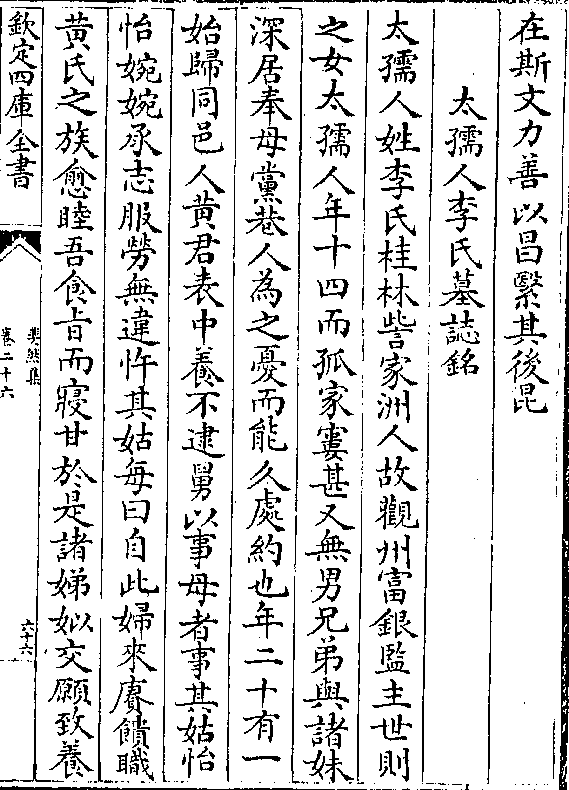 在斯文力善以昌繫其後昆
太孺人李氏墓誌銘
太孺人姓李氏桂林訾家洲人故觀州富銀監主世則
之女太孺人年十四而孤家窶甚又無男兄弟與諸妹
深居奉母黨巷人為之憂而能久處約也年二十有一
始歸同邑人黃君表中養不逮舅以事母者事其姑怡
怡婉婉承志服勞無違忤其姑每曰自此婦來賡饋職
黃氏之族愈睦吾食㫖而寢甘於是諸娣姒交願致養
欽定四庫全書
斐然集
卷二十六
六十六